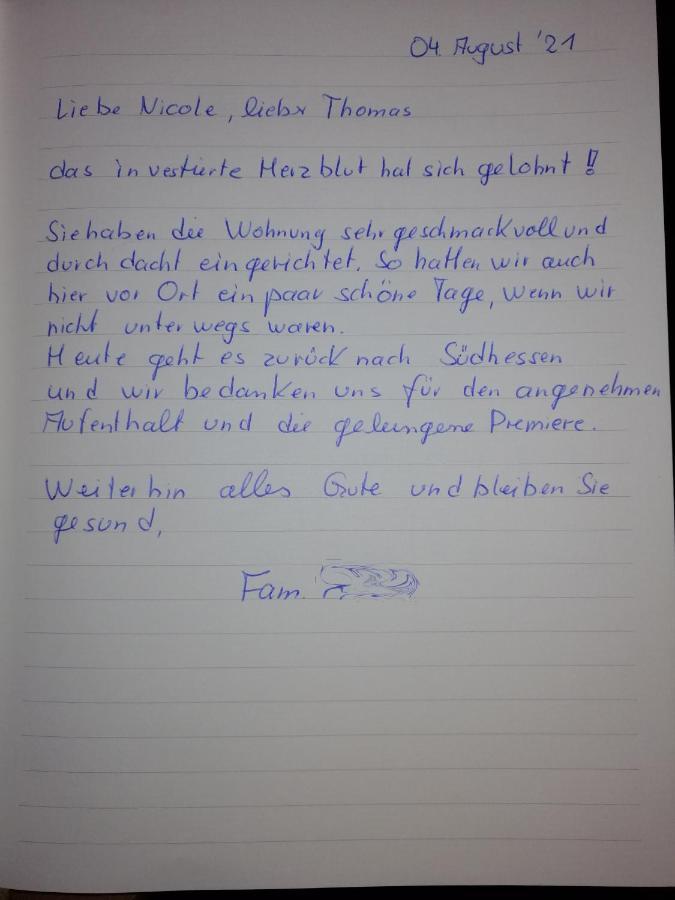 04. August '21
Liebe Nicole, lieber Thomas
das investierte Herzblut hat sich gelohnt !!
Sie haben die Wohnung sehr geschmackvoll und
durchdacht eingerichtet. So hatten wir auch
hier vor Ort ein paar schöne Tage, wenn wir
nicht unterwegs waren.
Heute geht es zurück nach Südhessen
und wir bedanken uns für den angenehmen
Aufenthalt und die gelungene Premiere.
Weiterhin alles Gute und bleiben Sie
gesund,
Fam.